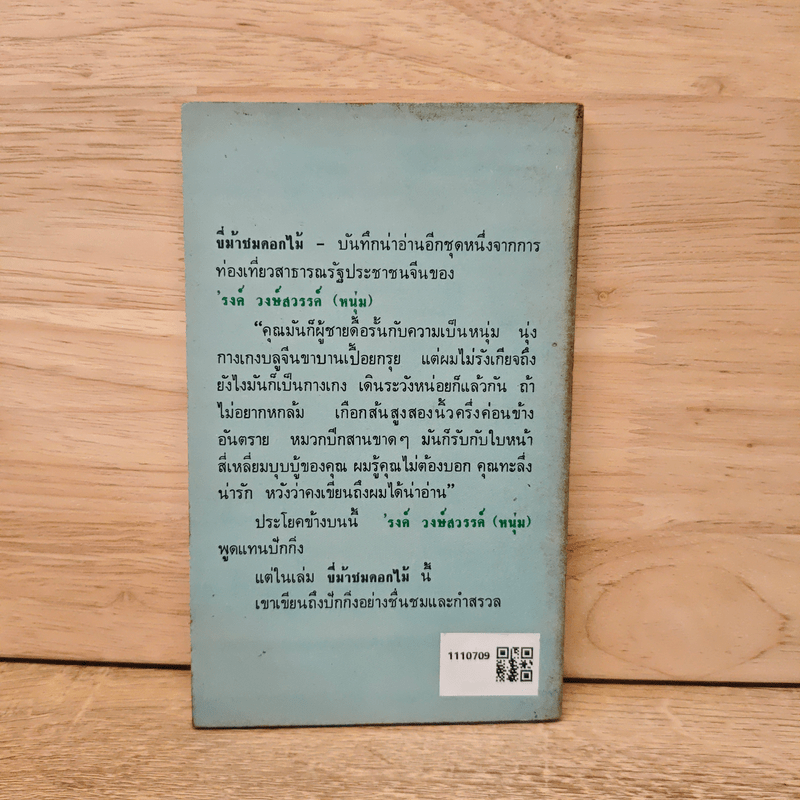 ขี่ม้าชมดอกไม้ – บันทึกน่าอ่านอีกชุดหนึ่งจากการ
ท่องเที่ยวสาธารณรัฐประชาชนจีนของ
'รงค์ วงษ์สวรรค์ (หนุ่ม)
“คุณมันก็ผู้ชายดื้อรั้นกับความเป็นหนุ่ม นุ่ง
กางเกงบลูจีนขาบานเปื้อยกรุย แต่ผมไม่รังเกียจถึง
ยังไงมันก็เป็นกางเกง เดินระวังหน่อยก็แล้วกัน ถ้า
ไม่อยากหกล้ม เกือกส้นสูงสองนิ้วครึ่งค่อนข้าง
อันตราย หมวกปีกสานขาดๆ มันก็รับกับใบหน้า
สี่เหลี่ยมบุบบู้ของคุณ ผมรู้คุณไม่ต้องบอก คุณทะลึ่ง
น่ารัก หวังว่าคงเขียนถึงผมได้น่าอ่าน”
ประโยคข้างบนนี้ 'รงค์ วงษ์สวรรค์ (หนุ่ม)
พูดแทนปักกิ่ง
แต่ในเล่ม ขี่ม้าชมดอกไม้ นี้
เขาเขียนถึงปักกิ่งอย่างชื่นชมและกำสรวล
1110709